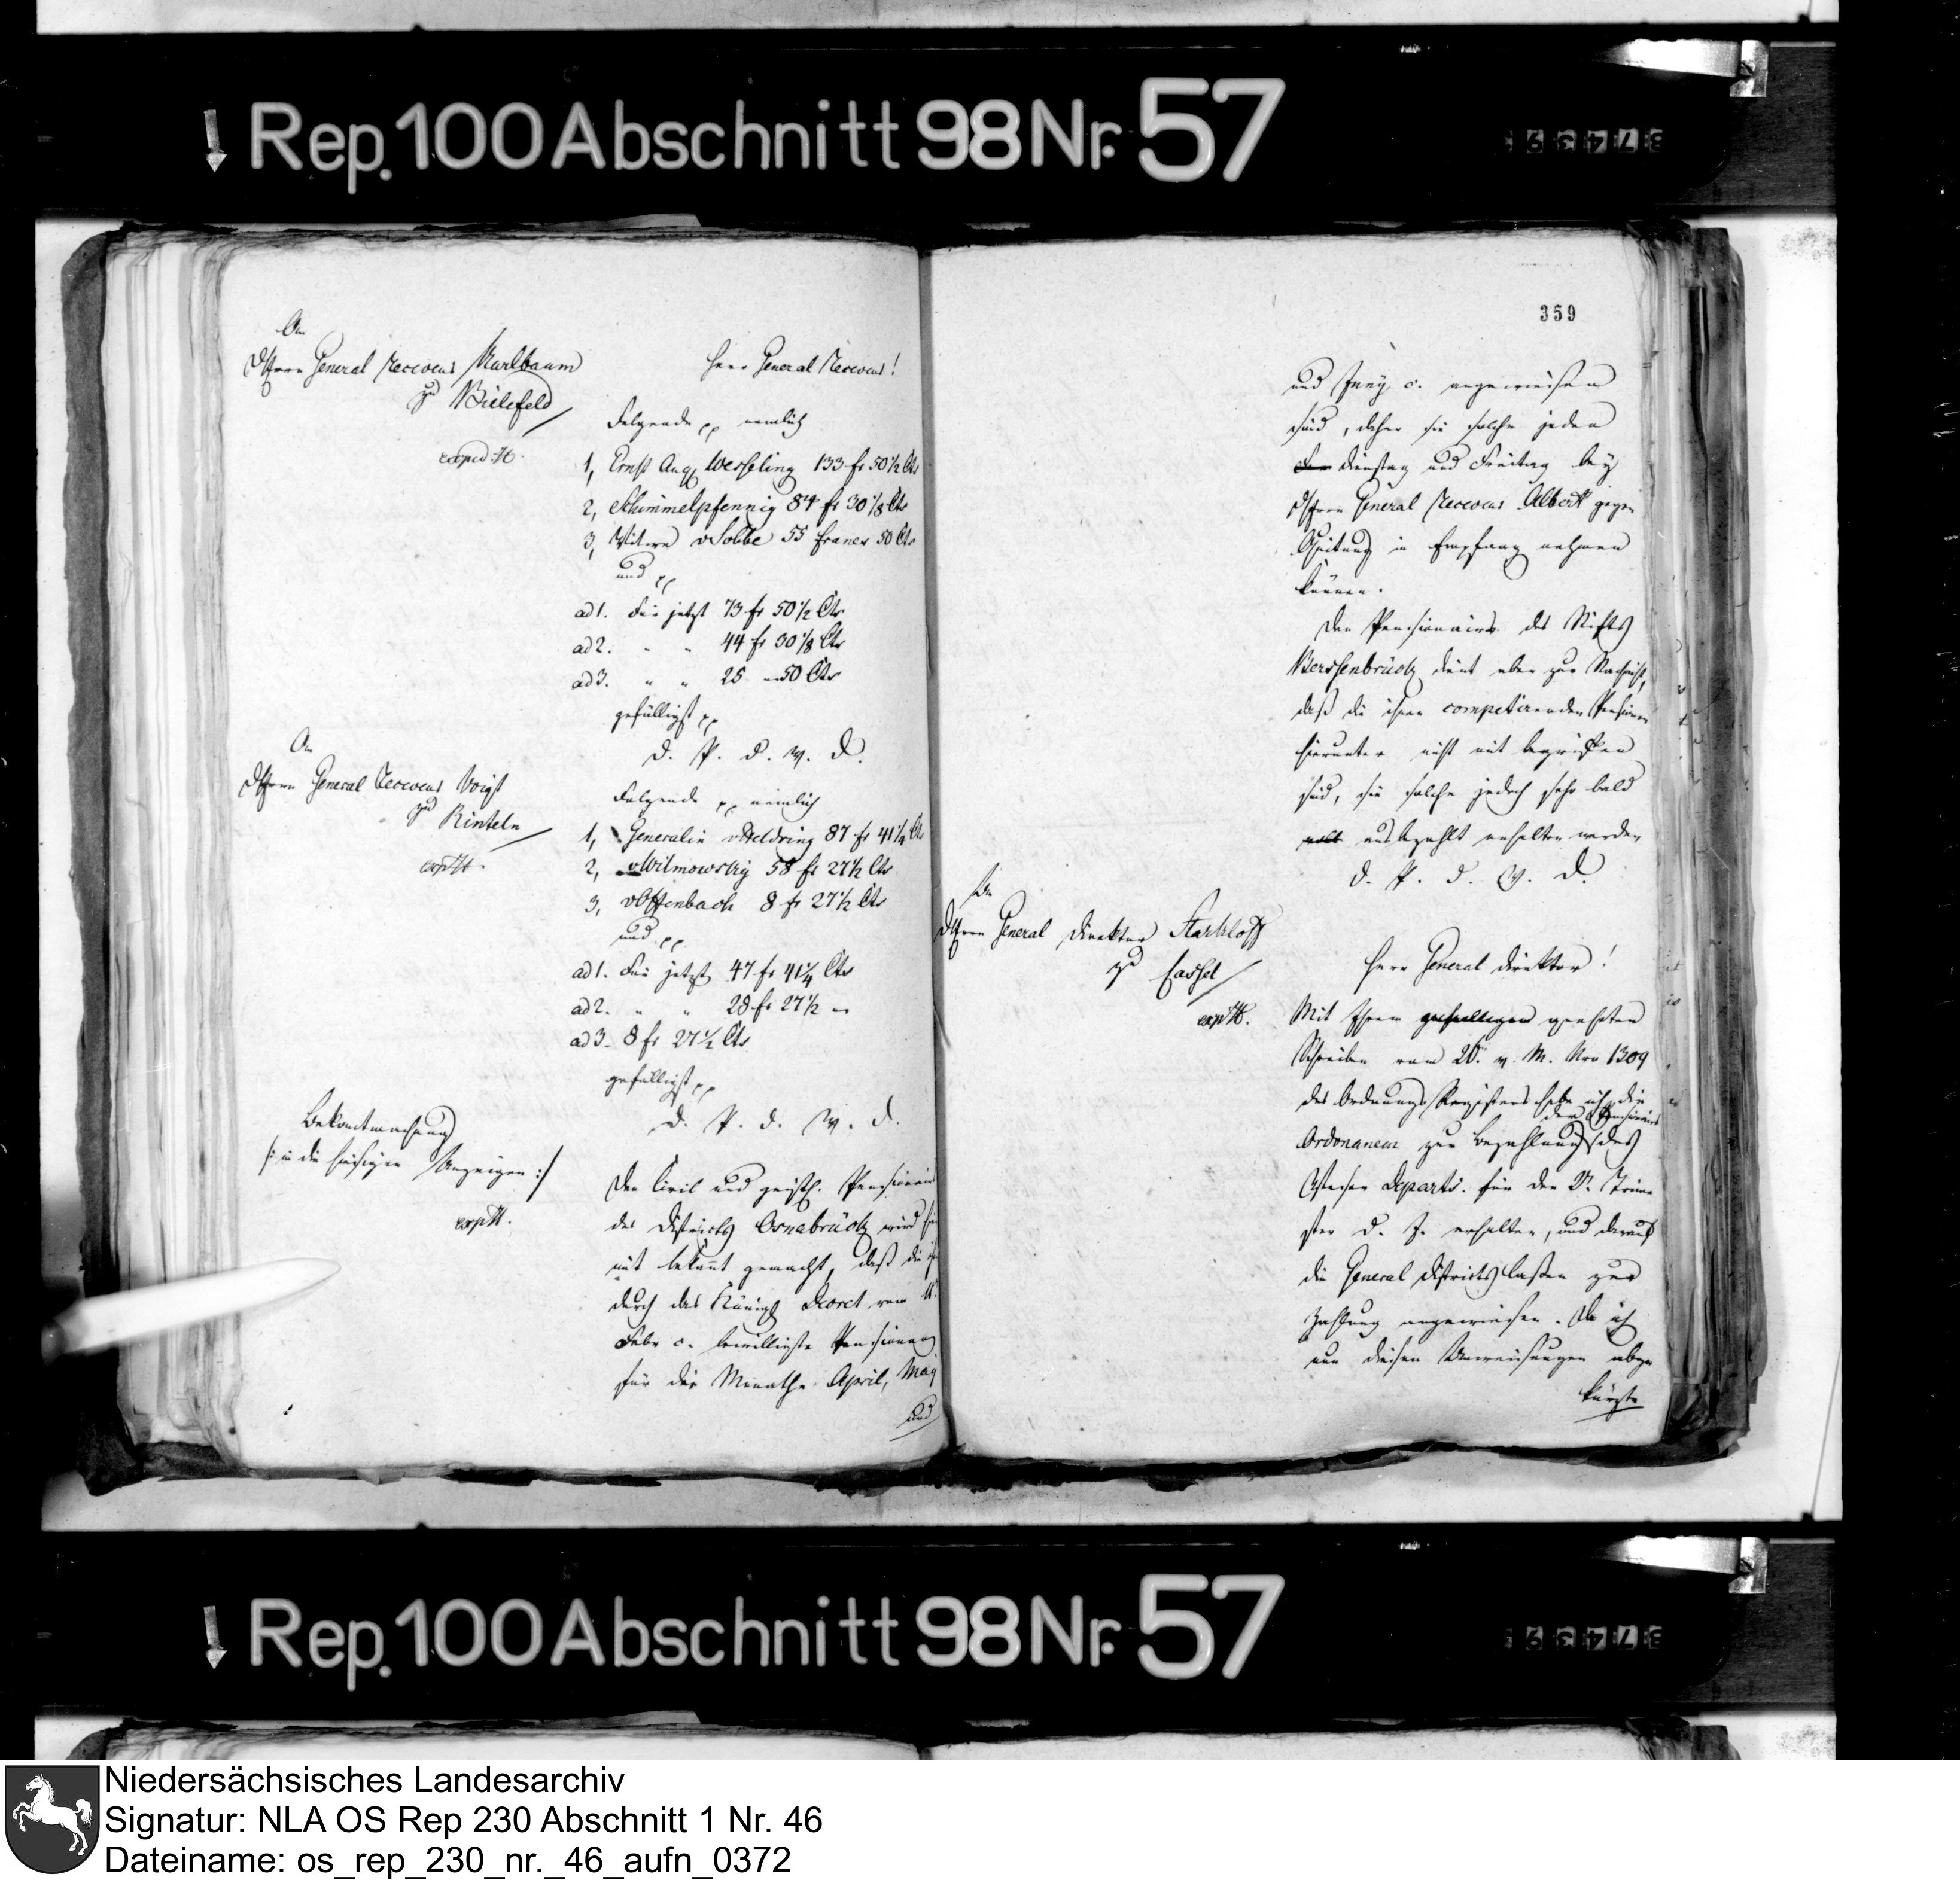 Rep. 100 Abschnitt 98 Nr. 57
An
d Herrn General Receveur Marlbaum
zu Bielefeld
exped H.
Herr General Receveur!
Folgende pp nemlich
1, Ernst Aug Wessling 133 fr 50 1/2 Cts
2, Schimmelpfennig 84 fr 30 1/8 Cts
3, Witwe v Sobbe 55 Francs 50 Cts
und pp
ad 1. Für jetzt 73 fr 50 1/2 Cts
ad 2. " " 44 fr 30 1/8 Cts
ad 3. " " 25 - 50 Cts
gefälligst pp
D. P. d. W. D.
An
d Herrn General Receveur Voigt
zu Rinteln
exp H.
Folgende pp nemlich
1, Generalin v Meldring 87 fr 41 1/4 Cts
2, v Wilmowsky 58 fr 27 1/2 Cts
3, v Offenbach 8 fr 27 1/2 Cts
und pp
ad 1. Für jetzt 47 fr 41 1/4 Cts
ad 2. " " 28 fr 27 1/2 "
ad 3. 8 fr 27 1/2 Cts
gefälligst pp
D. P. d. W. D.
Bekantmachung
/: in die hiesigen Anzeigen :/
exp H.
Den Civil und geistl. Pensionairs
des Districts Osnabrück wird hie
mit bekannt gemacht, daß die ih
durch das Königl Decret vom 11.
Febr c. bewilligte Pensionen
für die Monathe April, May
und
359
und Juny c. angewiesen
sind, daher sie solche jeden
Dienstag und Freitag bey
d Herrn General Receveur Albert gegen
Quitung in Empfang nehmen
können.
Den Pensionairs des Stifts
Bersenbrück dient aber zur Nachricht,
daß die ihnen competirenden Pensionen
hierunter nicht mit begriffen
sind, sie solche jedoch sehr bald
ausbezahlt erhalten werden
D. P. d. W. D.
An
d Herrn General Direktor Starkloff
zu Cassel
exp H.
Herr General Direktor!
Mit Ihrem gefälligen geehrten
Schreiben vom 26. v. M. Nro 1309
des Ordnungs Registers habe ich die
der Pensionairs
Ordonanzen zur Bezahlung des
Weser Departs. für das 2. Trime
ster d. J. erhalten, und darauf
die General Districts Cassen zur
Zahlung angewiesen. Da ich
nun diesen Anweisungen abge
kürzte
Rep. 100 Abschnitt 98 Nr. 57
Niedersächsisches Landesarchiv
Signatur: NLA OS Rep 230 Abschnitt 1 Nr. 46
Dateiname: os_rep_230_nr._46_aufn_0372